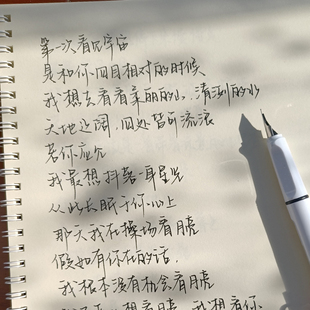 第一次看见宇宙
是和你四目相对的时候
我想去看看美丽的山，清澈的水
天地辽阔，四处皆可流浪
若你应允
我最想抖落一身星光
从此长眠于你心上
那天我在操场看月亮
假如有你在的话
我根本没有机会看月亮
想看月亮，我想看你